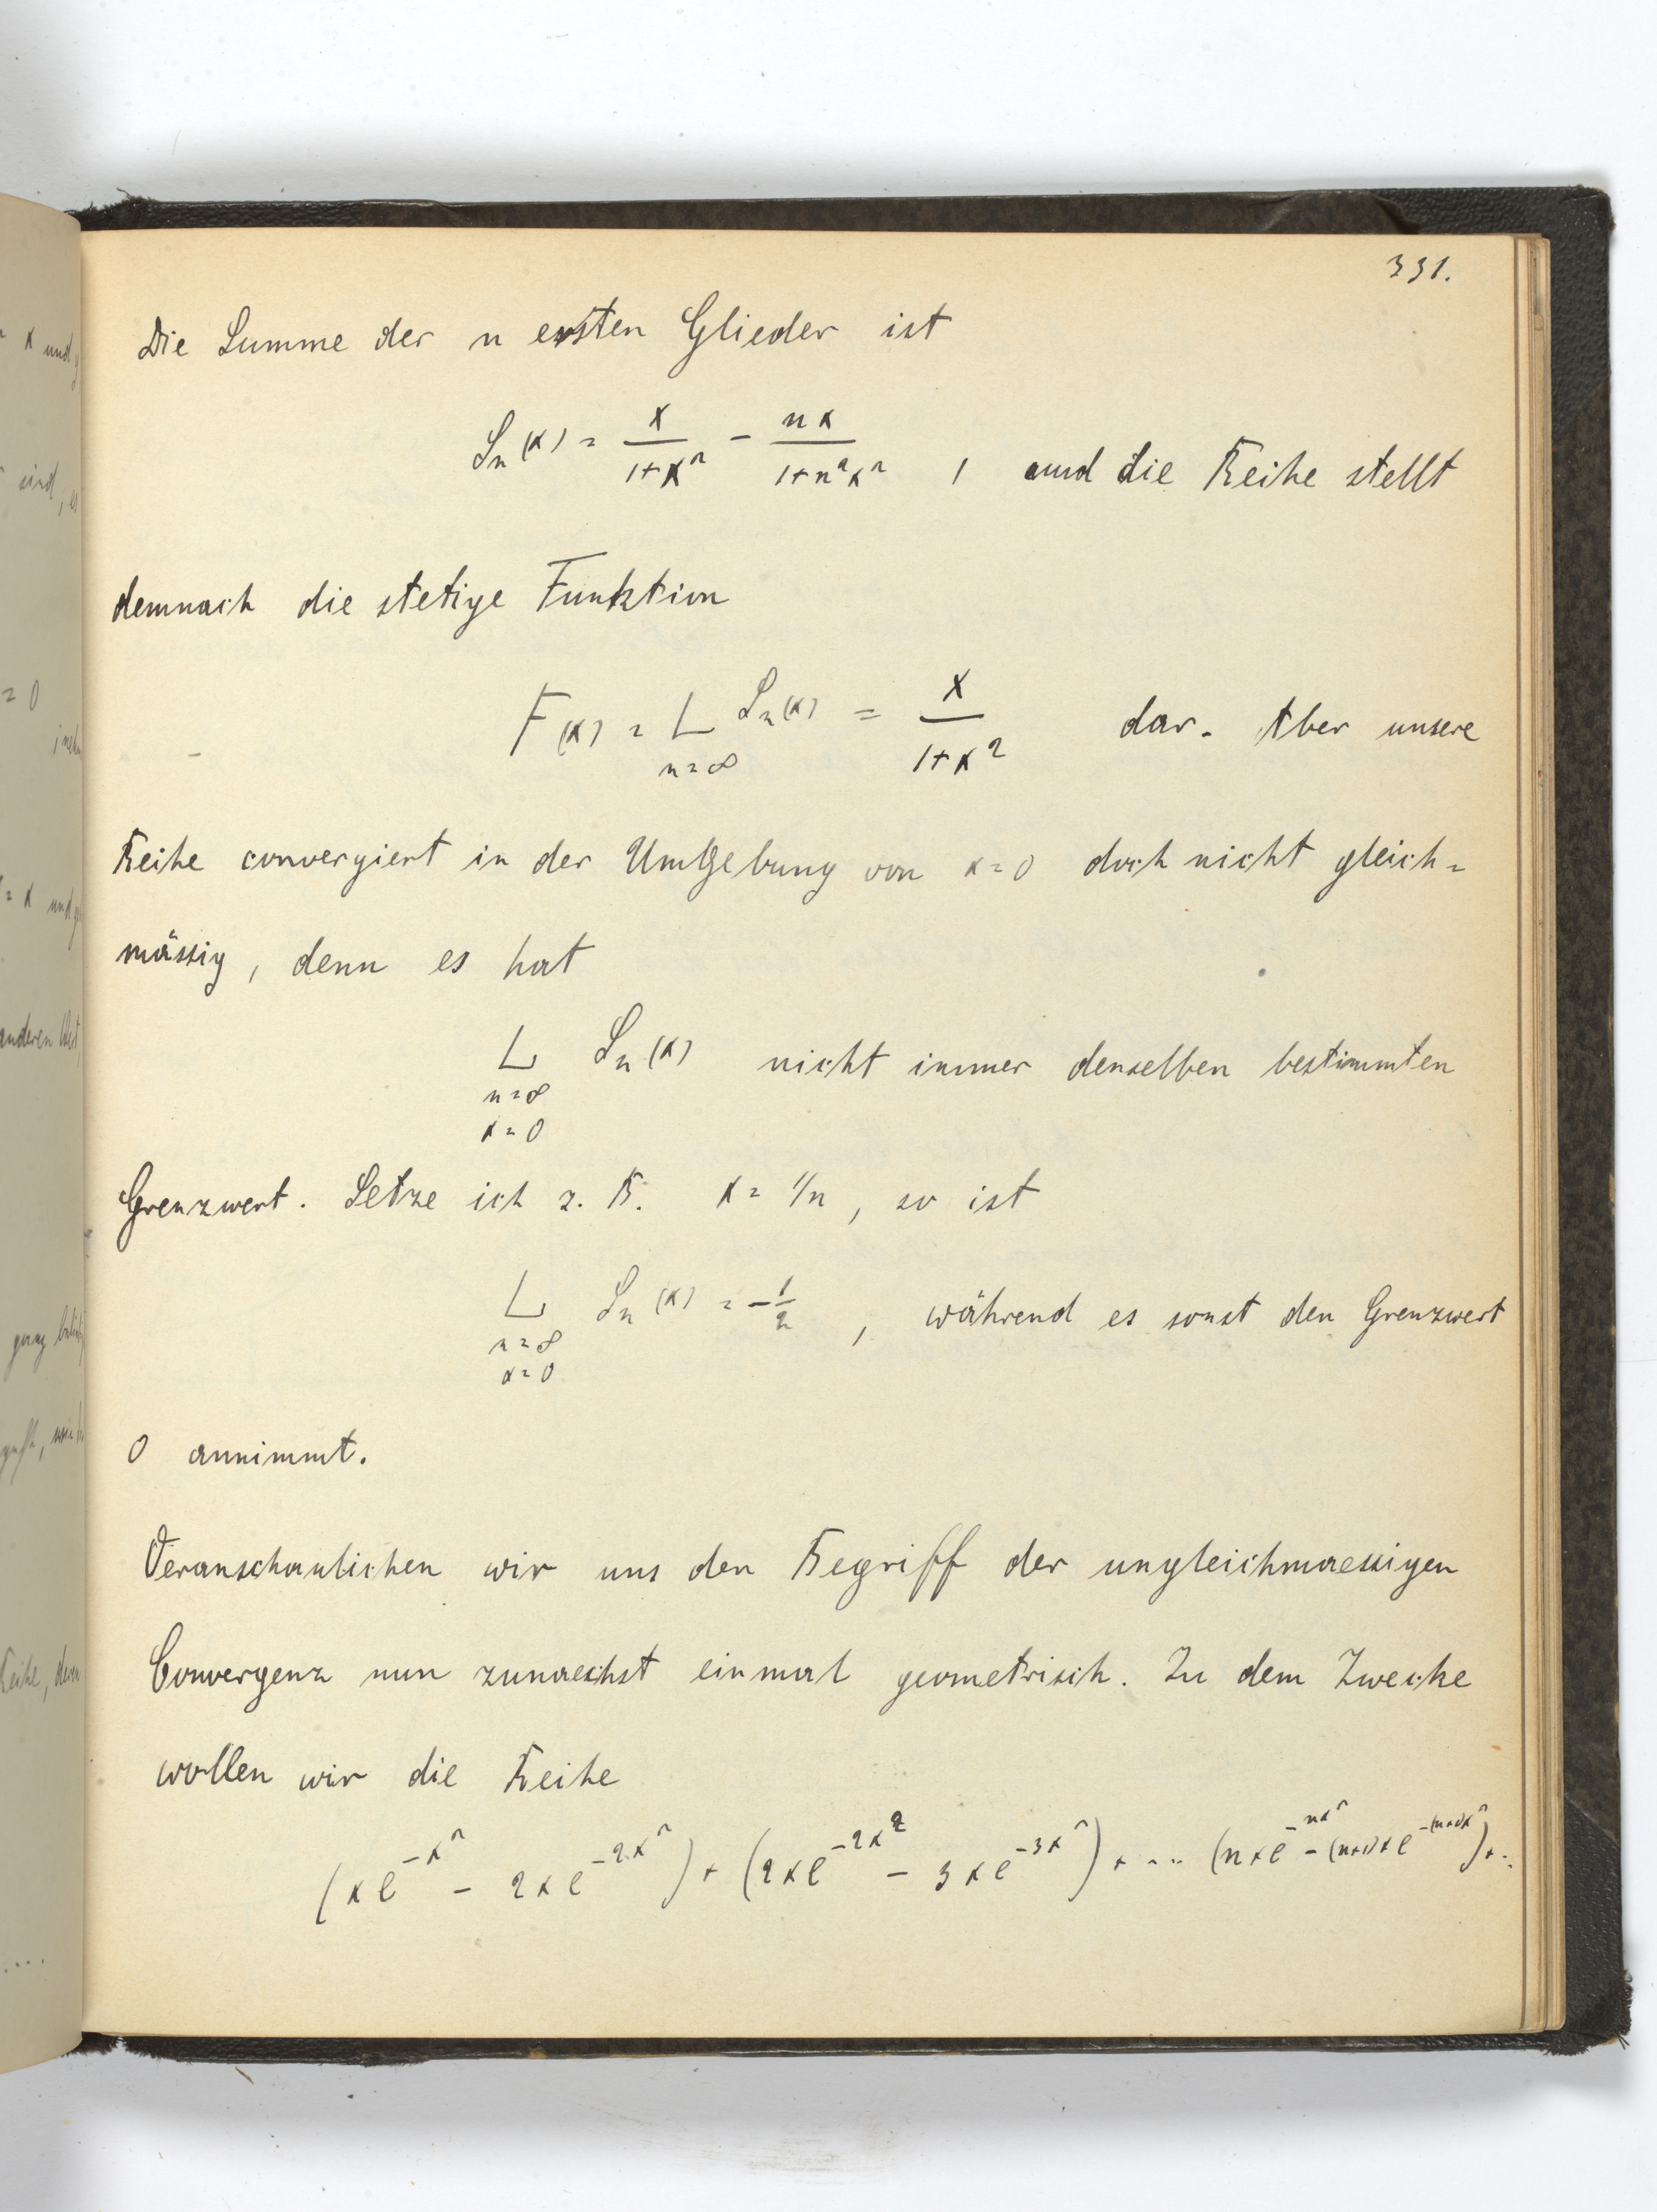 331.
Die Summe der n ersten Glieder ist
Sₙ(x) = x/(1+x²) - nx/(1+n²x²) , und die Reihe stellt
demnach die stetige Funktion
F(x) = L Sₙ(x) = x/(1+x²) dar. Aber unsere
n=∞
Reihe convergiert in der Umgebung von x=0 doch nicht gleich=
mässig, denn es hat
L Sₙ(x) nicht immer denselben bestimmten
n=∞
x=0
Grenzwert. Setze ich z. B. x = 1/n, so ist
L Sₙ(x) = -1/2 , während es sonst den Grenzwert
n=∞
x=0
0 annimmt.
Veranschaulichen wir uns den Begriff der ungleichmaessigen
Convergenz nun zunaechst einmal geometrisch. Zu dem Zwecke
wollen wir die Reihe
(xe^(-x²) - 2xe^(-2x²)) + (2xe^(-2x²) - 3xe^(-3x²)) + ... (nxe^(-nx²) - (n+1)xe^(-(n+1)x²)) + ..